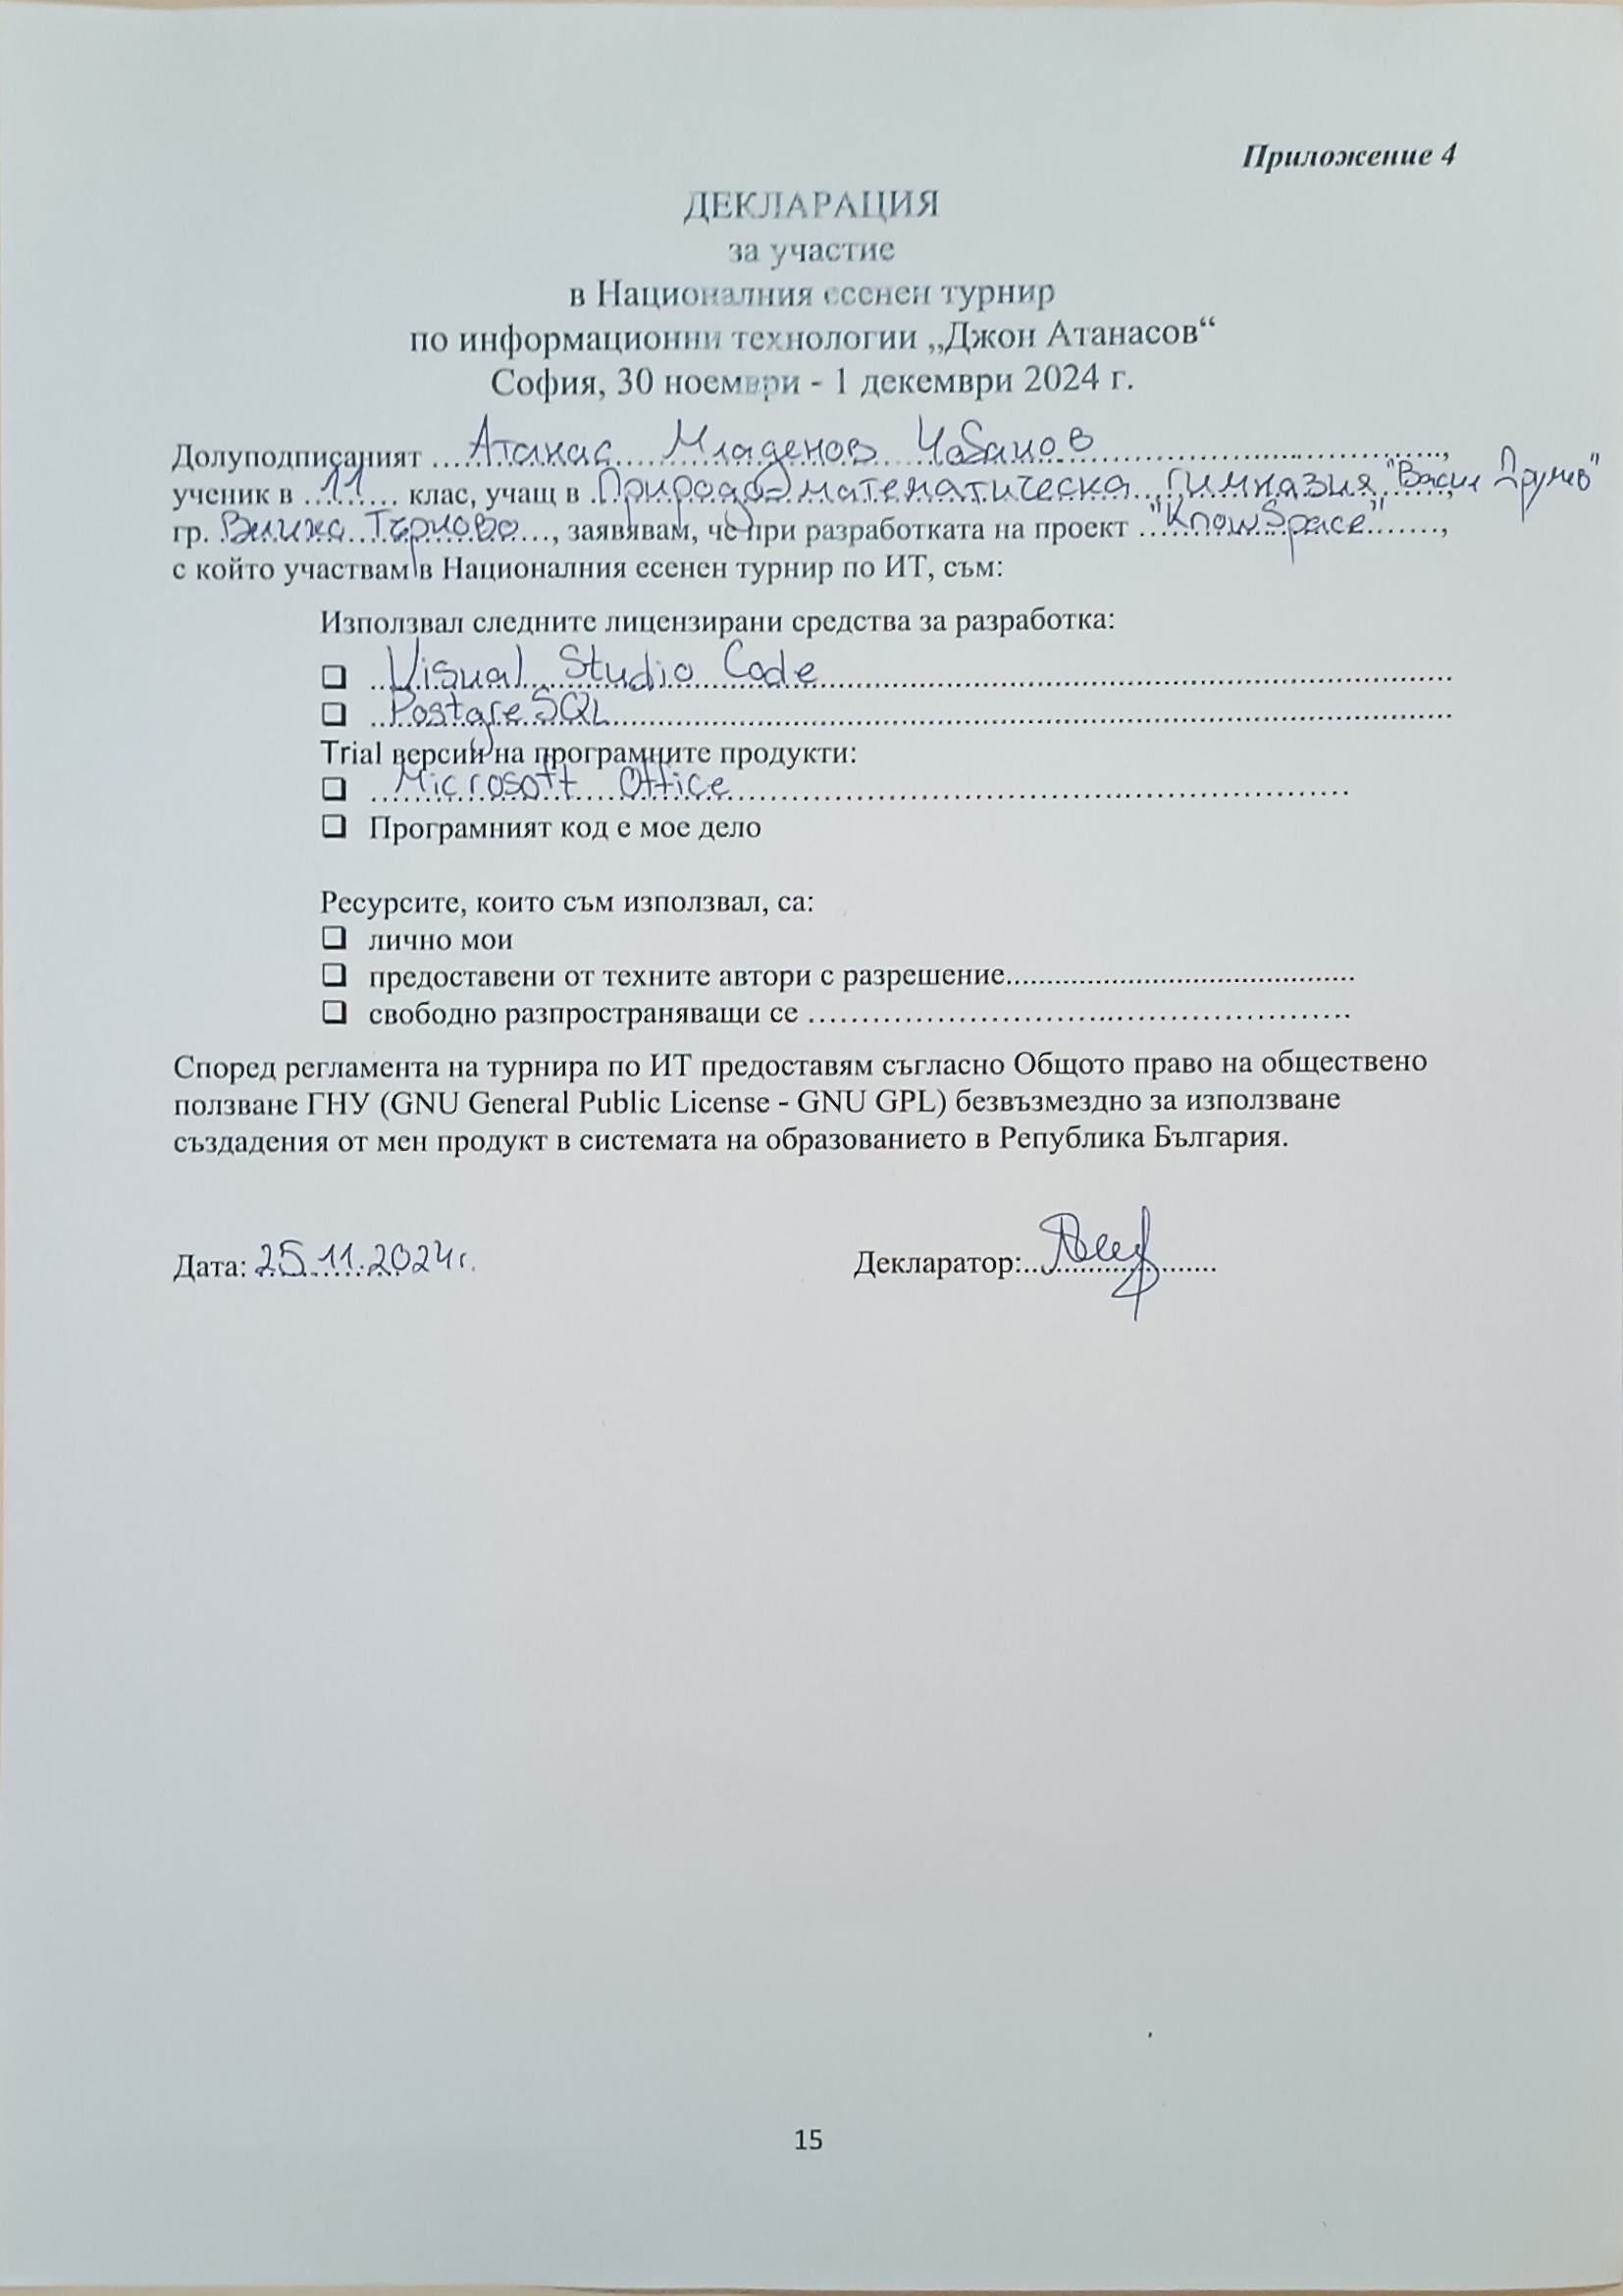 Приложение 4
ДЕКЛАРАЦИЯ
за участие
в Националния есенен турнир
по информационни технологии „Джон Атанасов“
София, 30 ноември - 1 декември 2024 г.
Долуподписаният ....Атанас Младенов Чобанов....,
ученик в ...11... клас, учащ в Природо-математическа гимназия "Васил Друмев"
гр. Велико Търново...., заявявам, че при разработката на проект ..."KnowSpace"......,
с който участвам в Националния есенен турнир по ИТ, съм:
Използвал следните лицензирани средства за разработка:
❑ ..Visual Studio Code......
❑ ..PostgreSQL......
Trial версии на програмните продукти:
❑ ...Microsoft Office......
❑ Програмният код е мое дело
Ресурсите, които съм използвал, са:
❑ лично мои
❑ предоставени от техните автори с разрешение......
❑ свободно разпространяващи се ......
Според регламента на турнира по ИТ предоставям съгласно Общото право на обществено
ползване ГНУ (GNU General Public License - GNU GPL) безвъзмездно за използване
създадения от мен продукт в системата на образованието в Република България.
Дата: 25.11.2024г. Декларатор:......
15